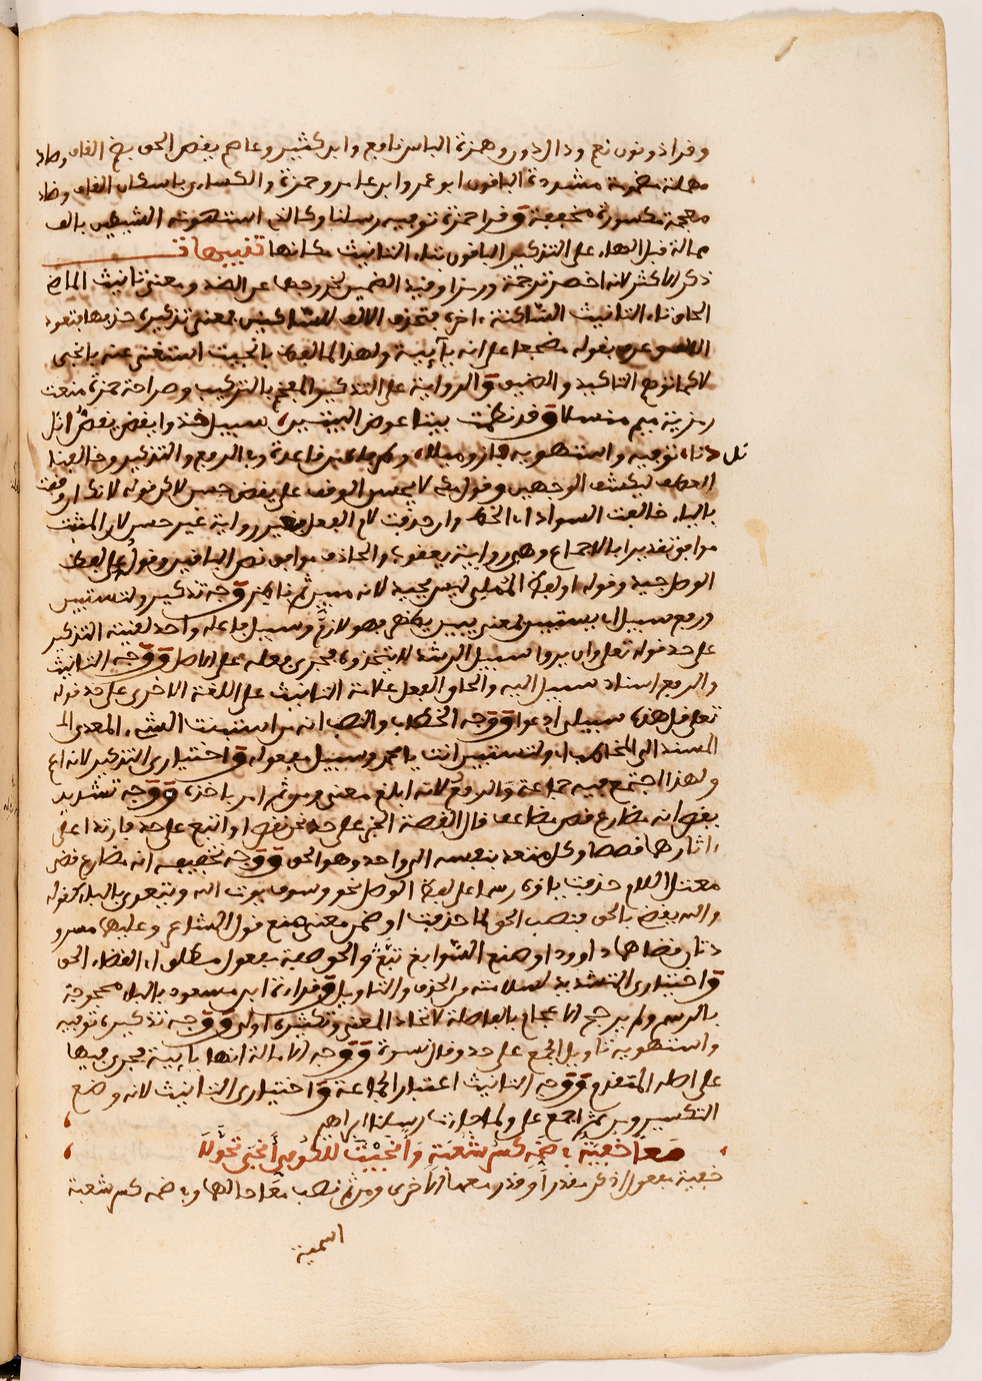 وقرا ذو نون نع ودال دور وهمزة الباس نافع وابن كثير وعاصم يقص الحق بضم القاف وصاد
مهملة مضمومة مشددة الباقون ابو عمرو وابن عامر وحمزة والكسائي باسكان القاف وضاد
معجمة مكسورة مخففة وقرا حمزة توفيه رسلنا وكالذي استهويه الشيطين بالف
ممالة قبل الهاء على التذكير الباقون بتاء التانيث مكانها تنبيهات
ذكر الاكثر لانه اخصر ترجمة ورمزا وقيد الضمين لخروجها عن الضد ومعنى تانيث الماضي
الحاق تاء التانيث الساكنة اخره فتحذف الالف للساكنين فمعنى تذكيره حذفها فتعود
بقوله مضجعا على انه يآيية ولهذا لما بانجيت استغنى عنه بانجى
لاكما توهم التاكيد والضيق والرواية على التذكير المعجم بالتركيب وصراحة حمزة منعت
رمزية ميم منسلا وقد نظمت بيتا عوض البيتين سبيل خذوا يقض يقص اثل
تل دنا توفيه واستهويه فاز وميلا وبالرفع والتذكير وخالفنا
ليكشف الوجهين وقول مكي لا يحسن الوقف على يقض حسن لاكن قوله لانك ان وقفت
بالياء خالفت السواد اي الخط وان حذفت لام الفعل فغير رواية غير حسن لان المثبت
موافق تقديرا بالاجماع وهي رواية يعقوب والحاذف موافق نص الباقين وقوله على لفظ
الوصل جيد وقوله او لفظ الممثلي ليس بجيد لانه مبين ثم وجه تذكير ولتستبين
ورفع سبيل ان يستبين بمعنى يبين يظهر فهو لازم وسبيل فاعله واحد لغيته التذكير
على حد قوله تعلى وان يروا سبيل الرشد لا يتخذوه فجرى فعله على الاصل ووجه التانيث
والرفع اسناد سبيل اليه والحاق الفعل علامة التانيث على اللغة الاخرى على حد قوله
تعلى قل هذه سبيلي ادعوا ووجه الخطاب والنصب انه من استبنت الشيء المعدى
المسند الى المخاطب اي ولتستبين انت يا محمد وسبيل مفعوله واختياري التذكير لانه اعم
ولهذا اجتمع فيه جماعة والرفع لانه ابلغ معنى ومن ثم امر باخذه ووجه تشديد
يقص انه مضارع قص مضاعف قال القصة الخبر على حد نحن نقص او اتبع على حد فارتدا على
اثارهما قصصا وكل متعد بنفسه الى واحد وهو الحق ووجه تخفيفه انه مضارع قضى
معتل اللام حذفت ياؤه رسما على لفظ الوصل نحو وسوف يوت الله ويتعدى بالباء كقوله
والله يقضي بالحق فنصب الحق لما حذفت او ضمن معنى صنع قول الشاعر وعليهما مسرو
دتان قضاهما داوود او صنع السوابغ تبع والحق صفة مفعول مطلق اي القضاء الحق
واختياري التشديد لسلامته من الحذف والتاويل وقراءة ابن مسعود بالياء محجوجة
بالرسم ولم يرجح الاعجام بالفاصلة لاتحاد المعنى وتكثيره اولى ووجه تذكير توفيه
واستهويه تاويل الجمع على حد وقال نسوة ووجه الامالة انها يايية فجرى فيها
على اصله المتقدم ووجه التانيث اعتبار الجماعة واختياري التانيث لانه وضع
التكسير ومن ثم اجمع على ولما جاءت رسلنا ابراهيم
معا خفية في ضمه كسر شعبة وانجيت للكوفي انجى تحولا
خفية مفعول اذكر مقدرا وقدر معها الاخرى ومن ثم نصب معا حالها وفي ضمه كسر شعبة
اسمية